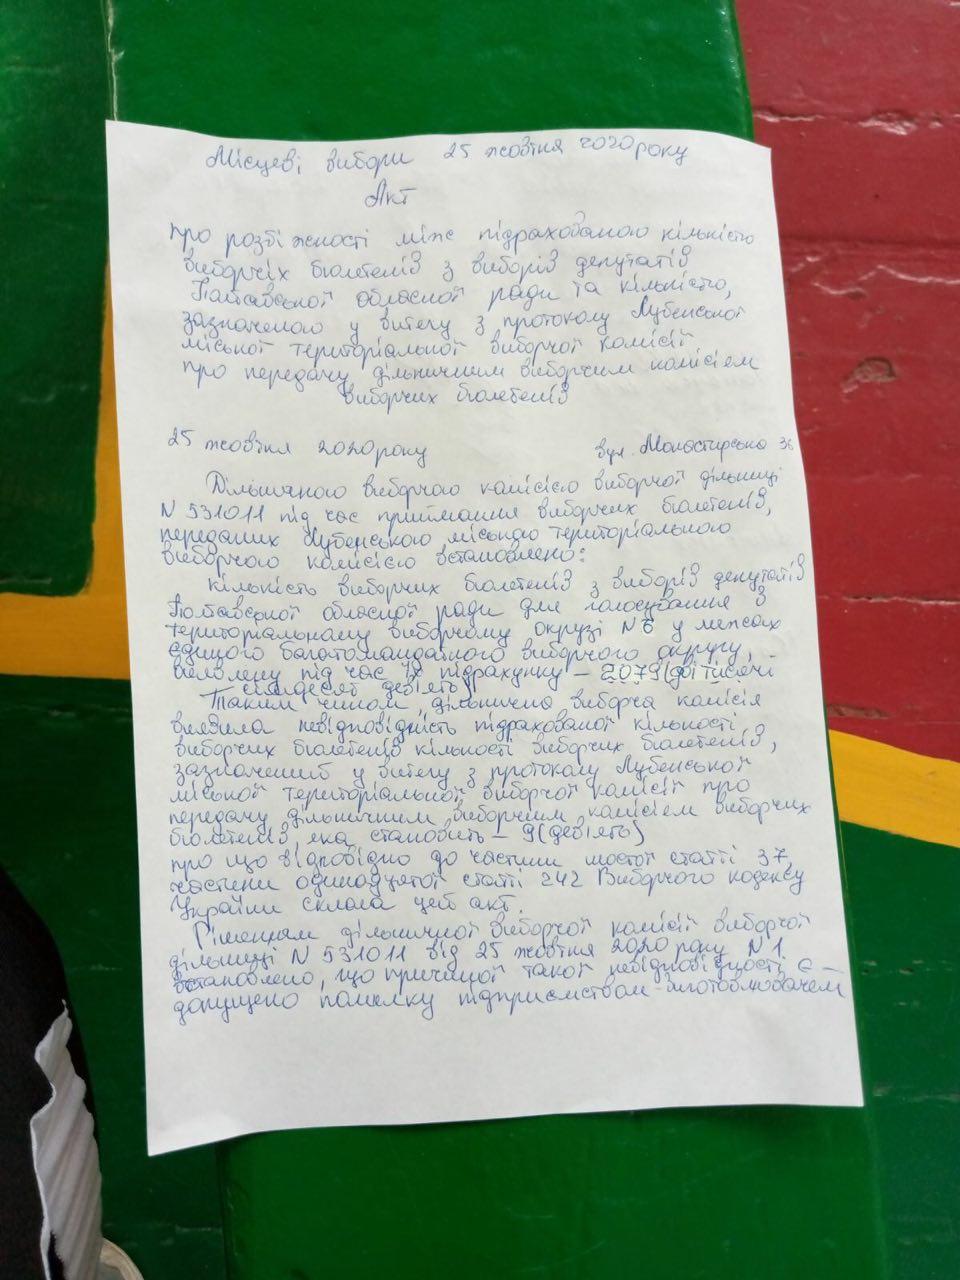 Місцеві вибори 25 жовтня 2020 року
Акт
про розбіжності між підрахованою кількістю
виборчих бюлетенів з виборів депутатів
Полтавської обласної ради та кількістю,
зазначеною у витягу з протоколу Лубенської
міської територіальної виборчої комісії
про передачу дільничним виборчим комісіям
виборчих бюлетенів
25 жовтня 2020 року вул. Монастирська 36
Дільничною виборчою комісією виборчої дільниці
N 531011 під час приймання виборчих бюлетенів,
переданих Лубенською міською територіальною
виборчою комісією встановлено:
кількість виборчих бюлетенів з виборів депутатів
Полтавської обласної ради для голосування в
територіальному виборчому окрузі N 6 у межах
єдиного багатомандатного виборчого округу,
виявлену під час їх підрахунку - 2079 (дві тисячі
сімдесят дев'ять)
Таким чином, дільнична виборча комісія
виявила невідповідність підрахованої кількості
виборчих бюлетенів кількості виборчих бюлетенів,
зазначений у витягу з протоколу Лубенської
міської територіальної виборчої комісії про
передачу дільничним виборчим комісіям виборчих
бюлетенів яка становить - 9 (дев'ять)
про що відповідно до частини шостої статті 37,
частини одинадцятої статті 242 Виборчого кодексу
України склала цей акт.
Рішенням дільничної виборчої комісії виборчої
дільниці N 531011 від 25 жовтня 2020 року N 1
встановлено, що причиної такої невідповідності є -
допущено помилку підприємством-виготовлювачем